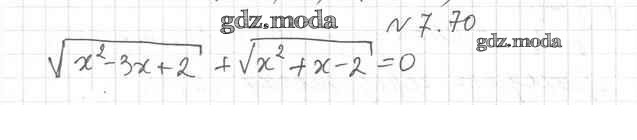 gdz.moda N 7.70
gdz.moda
√(x²-3x+2) + √(x²+x-2) = 0